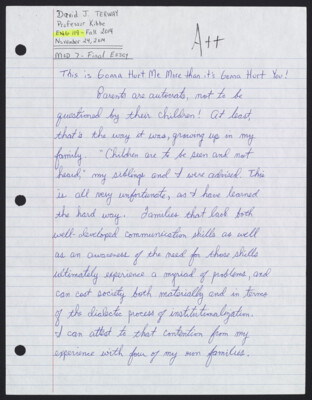 David J. TERWAY
Professor Kibbe
ENGL 119 - Fall 2014
November 24, 2014
A++
MOD 7 - Final Essay
This is Gonna Hurt Me More than it's Gonna Hurt You!
Parents are automats, not to be
questioned by their children! At least,
that's the way it was, growing up in my
family. "Children are to be seen and not
heard," my siblings and I were advised. This
is all very unfortunate, as I have learned
the hard way. Families that lack both
well-developed communication skills as well
as an awareness of the need for those skills
ultimately experience a myriad of problems, and
can cost society both materially and in terms
of the dialectic process of institutionalization.
I can attest to that contention from my
experience with four of my own families.